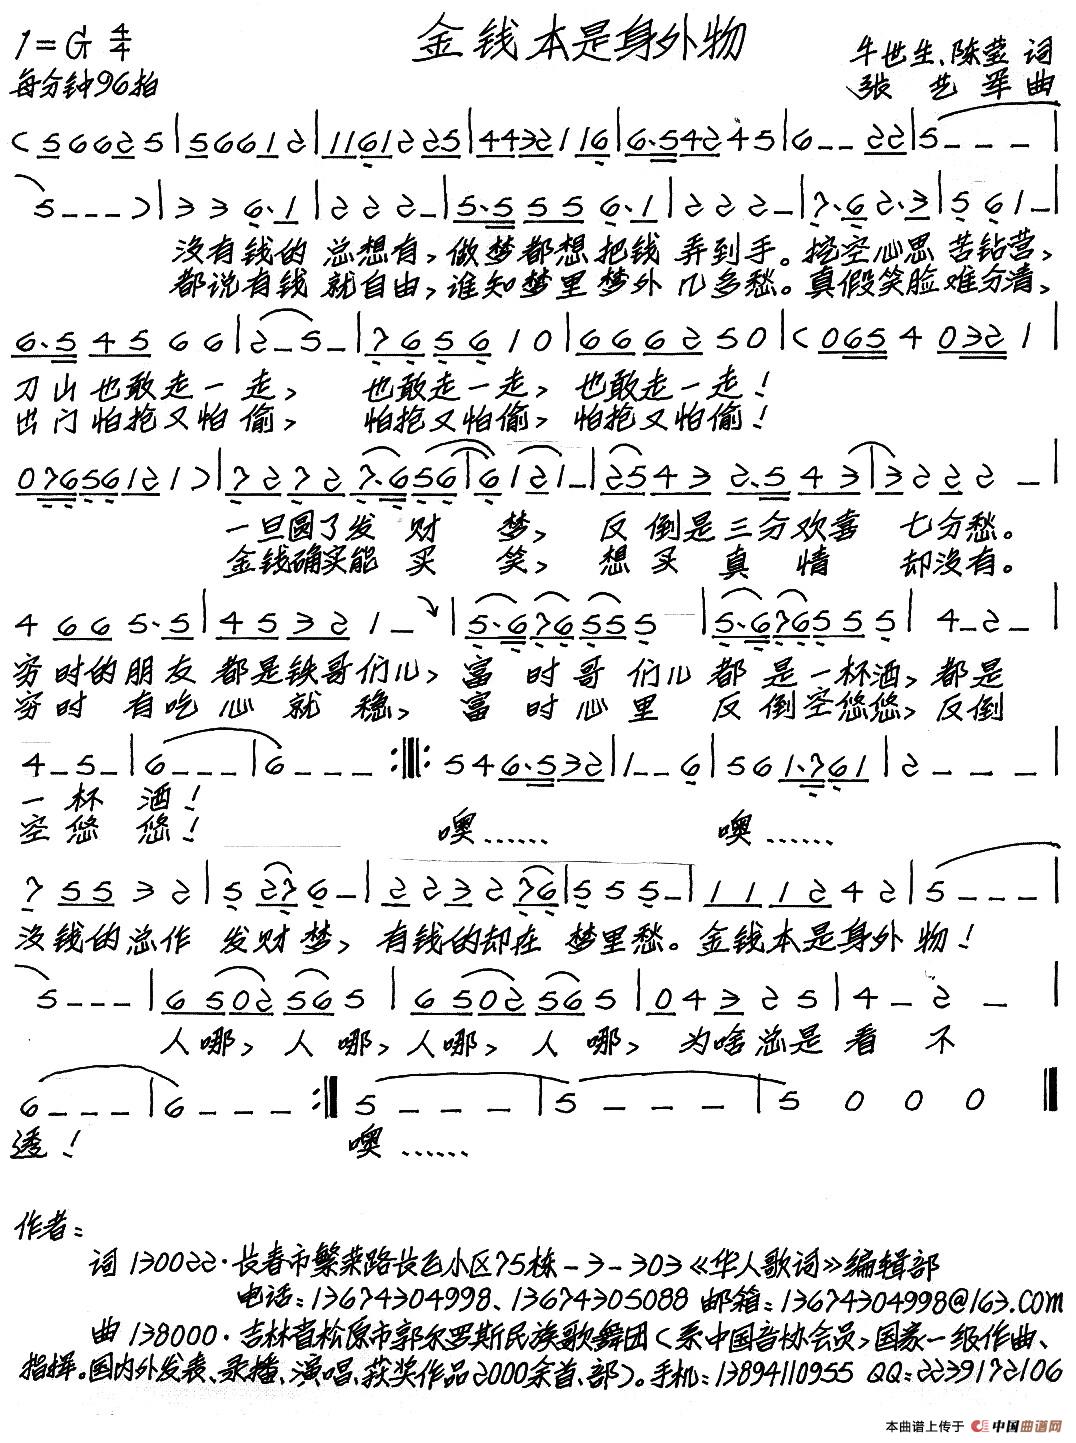 金钱本是身外物
1=G 4/4
牛世生、陈莹 词
每分钟96拍
张艺军 曲
(5 6 6 2 5|5 6 6 1 2|1 1 6 1 2 2 2 5|4 4 3 2 1 1 6|6·5 4 2 4 5|6 – – 2 2|5 – – –|
5 – – –)|3 3 6·1|2 2 2 –|5·5 5 5 6·1|2 2 2 –|7·6 2·3|5 6 1 –|
没有钱的总想有,做梦都想把钱弄到手。挖空心思苦钻营,
都说有钱就自由,谁知梦里梦外几多愁。真假笑脸难分清,
6·5 4 5 6 6|2 – 5 –|7 6 5 6 1 0|6 6 6 2 5 0|(0 6 5 4 0 3 2 1|
刀山也敢走一走,也敢走一走,也敢走一走!
出门怕抢又怕偷,怕抢又怕偷,怕抢又怕偷!
0 7 6 5 6 1 2 1)|7 2 7 2 7·6 5 6|6 1 2 1 –|2 5 4 3 2·5 4 3|3 2 2 2 –|
一旦圆了发财梦,反倒是三分欢喜七分愁。
金钱确实能买笑,想买真情却没有。
4 6 6 5·5|4 5 3 2 1 –|5·6 7 6 5 5 5|5·6 7 6 5 5 5|4 – 2 –|
穷时的朋友都是铁哥们儿,富时哥们儿都是一杯酒,都是
穷时有吃心就稳,富时心里反倒空悠悠,反倒
4 – 5 –|6 – – –|6 – – –:||:5 4 6·5 3 2|1 – – 6|5 6 1·7 6 1|2 – – –|
一杯酒!
空悠悠! 噢…… 噢……
7 5 5 3 2|5 2 7 6 –|2 2 3 2 7 6|5 5 5 –|1 1 1 2 4 2|5 – – –|
没钱的总作发财梦,有钱的却在梦里愁。金钱本是身外物!
5 – – –|6 5 0 2 5 6 5|6 5 0 2 5 6 5|0 4 3 2 5|4 – 2 –|
人哪,人哪,人哪,人哪,为啥总是看不
6 – – –|6 – – –:||5 – – –|5 – – –|5 0 0 0||
透! 噢……
作者:
词 130022·长春市繁荣路长飞小区75栋-3-303《华人歌词》编辑部
电话:13674304998、13674305088 邮箱:13674304998@163.com
曲 138000·吉林省松原市郭尔罗斯民族歌舞团(系中国音协会员,国家一级作曲、
指挥。国内外发表、录播、演唱、获奖作品2000余首、部)。手机:13894110955 QQ:2239172106
本曲谱上传于 中国曲谱网